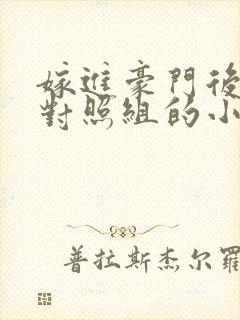 嫁進豪門後
對照組的小
普拉斯杰尔羅